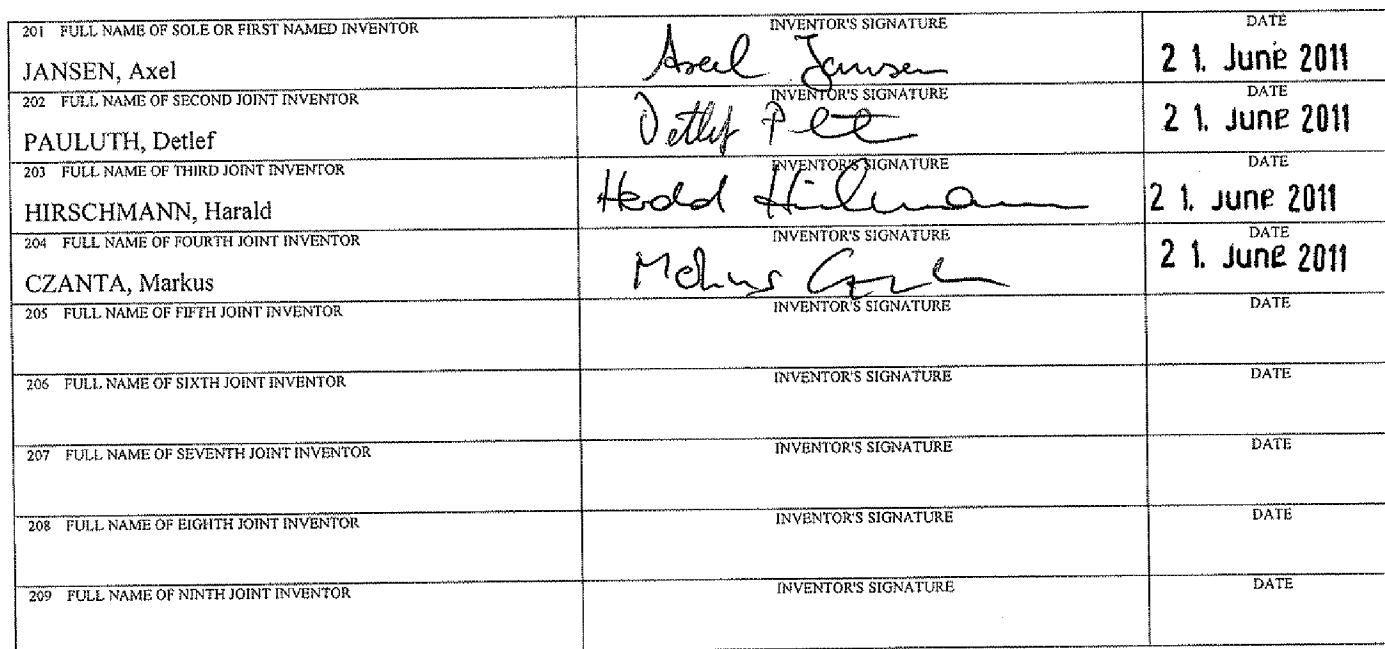 201 FULL NAME OF SOLE OR FIRST NAMED INVENTOR INVENTOR'S SIGNATURE DATE
JANSEN, Axel Axel Jansen 21. June 2011
202 FULL NAME OF SECOND JOINT INVENTOR INVENTOR'S SIGNATURE DATE
PAULUTH, Detlef Detlef 21. June 2011
203 FULL NAME OF THIRD JOINT INVENTOR INVENTOR'S SIGNATURE DATE
HIRSCHMANN, Harald 21. June 2011
204 FULL NAME OF FOURTH JOINT INVENTOR INVENTOR'S SIGNATURE DATE
CZANTA, Markus 21. June 2011
205 FULL NAME OF FIFTH JOINT INVENTOR INVENTOR'S SIGNATURE DATE
206 FULL NAME OF SIXTH JOINT INVENTOR INVENTOR'S SIGNATURE DATE
207 FULL NAME OF SEVENTH JOINT INVENTOR INVENTOR'S SIGNATURE DATE
208 FULL NAME OF EIGHTH JOINT INVENTOR INVENTOR'S SIGNATURE DATE
209 FULL NAME OF NINTH JOINT INVENTOR INVENTOR'S SIGNATURE DATE